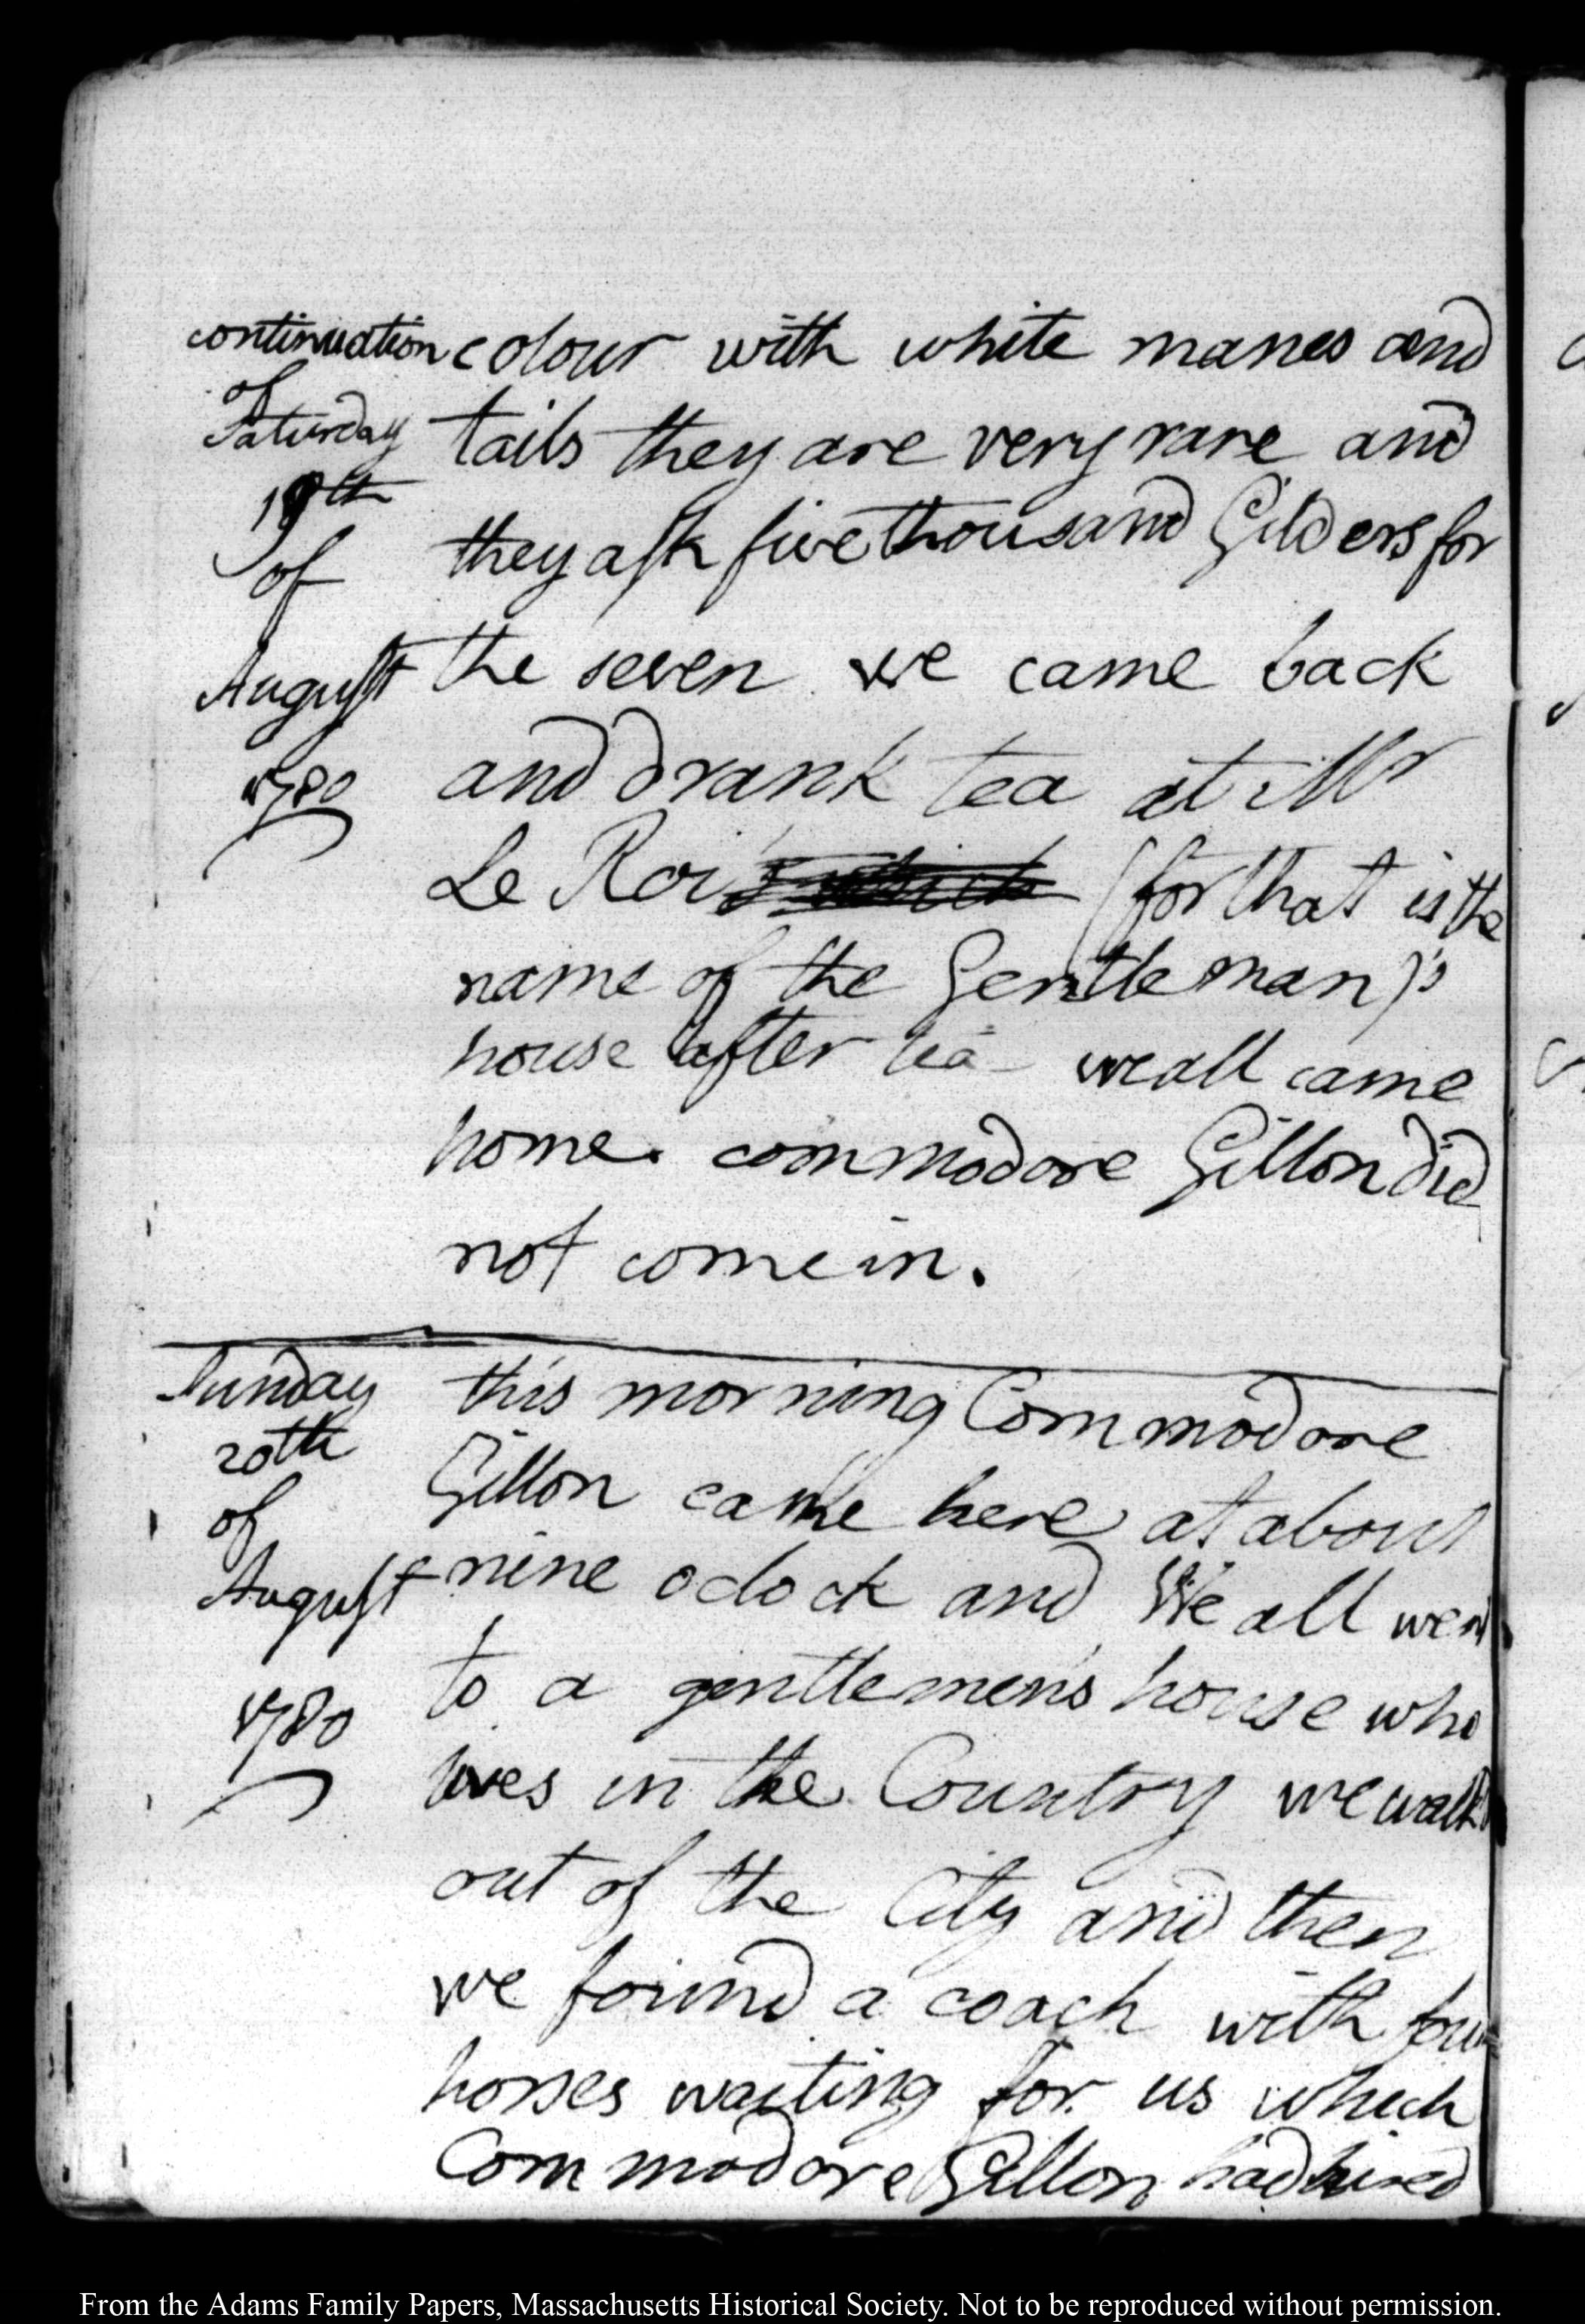 continuation
of
Saturday
19th
of
August
1780
colour with white manes and
tails they are very rare and
they ask five thousand Gilders for
the seven we came back
and drank tea at Mr
Le Roi's (for that is the
name of the Gentleman)'s
house after tea we all came
home. commodore Gillon did
not come in.
Sunday
20th
of
August
1780
this morning Commodore
Gillon came here at about
nine oclock and We all went
to a gentlemen's house who
lives in the Country we walk'd
out of the City and then
we found a coach with four
horses waiting for us which
Commodore Gillon had hired
From the Adams Family Papers, Massachusetts Historical Society. Not to be reproduced without permission.